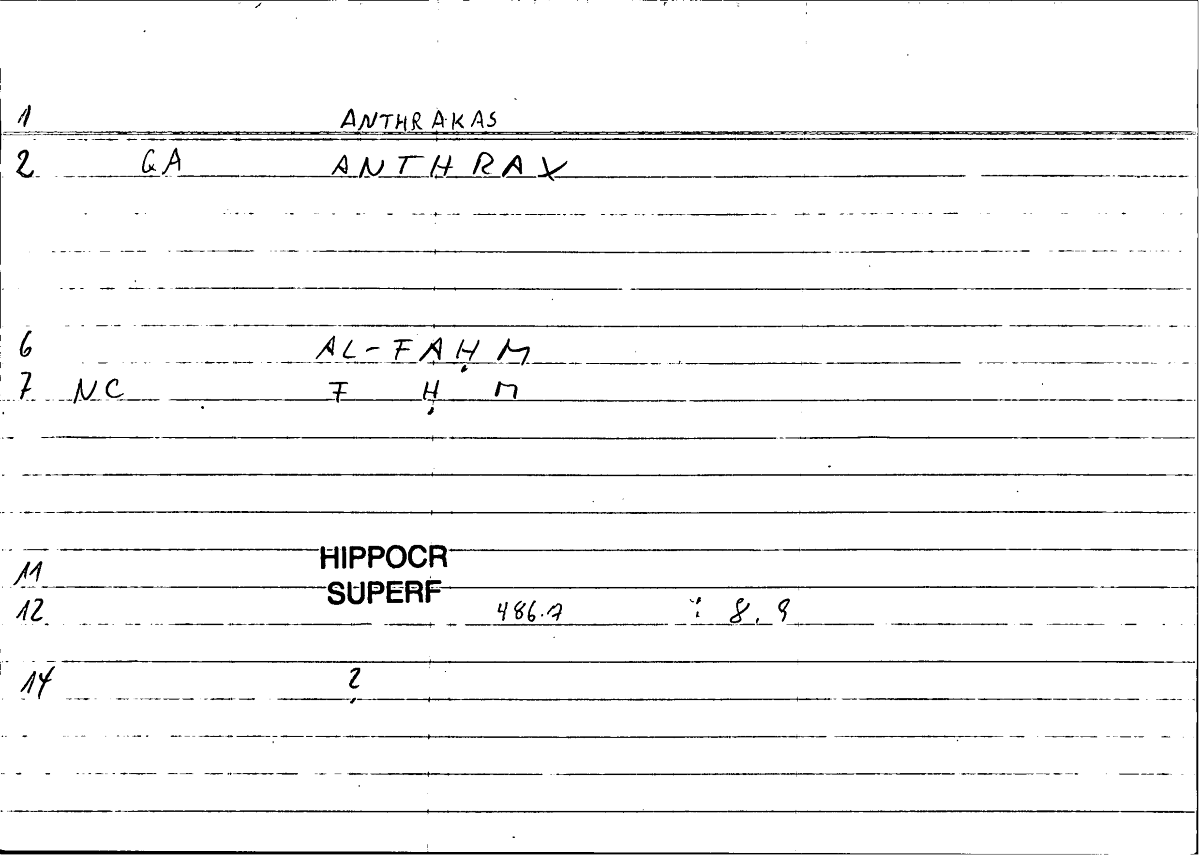 1 ANTHRAKAS
2 GA ANTHRAX
6 AL-FAḤM
7 NC F Ḥ M
11 HIPPOCR
SUPERF
12 486.7 : 8.9
14